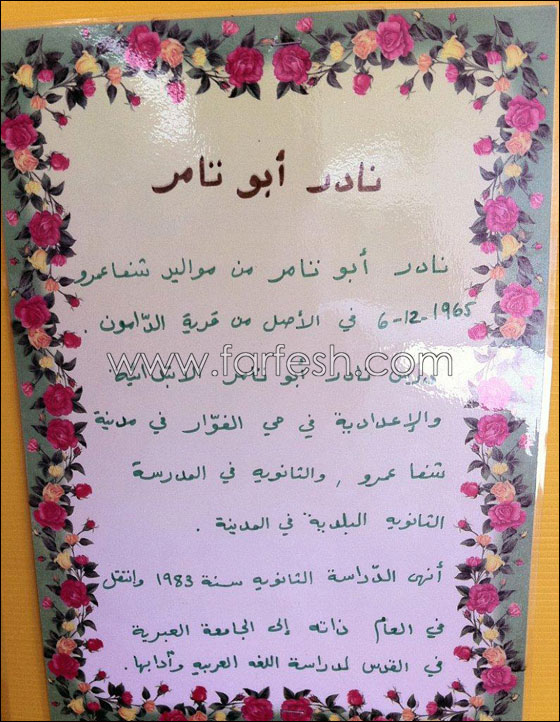 نادر أبو تامر
نادر أبو تامر من مواليد شفاعمرو
6-12-1965 في الأصل من قرية الدّامون .
www.farfesh.com
درس نادر أبو تامر الابتدائية
والإعدادية في حي الفوّار في مدينة
شفا عمرو , والثانويه في المدرسة
الثانويه البلدية في المدينة .
أنهى الدّراسة الثانويه سنة 1983 وانتقل
في العام ذاته إلى الجامعة العبرية
في القدس لمدراسة اللغه العربيه وأدابها .